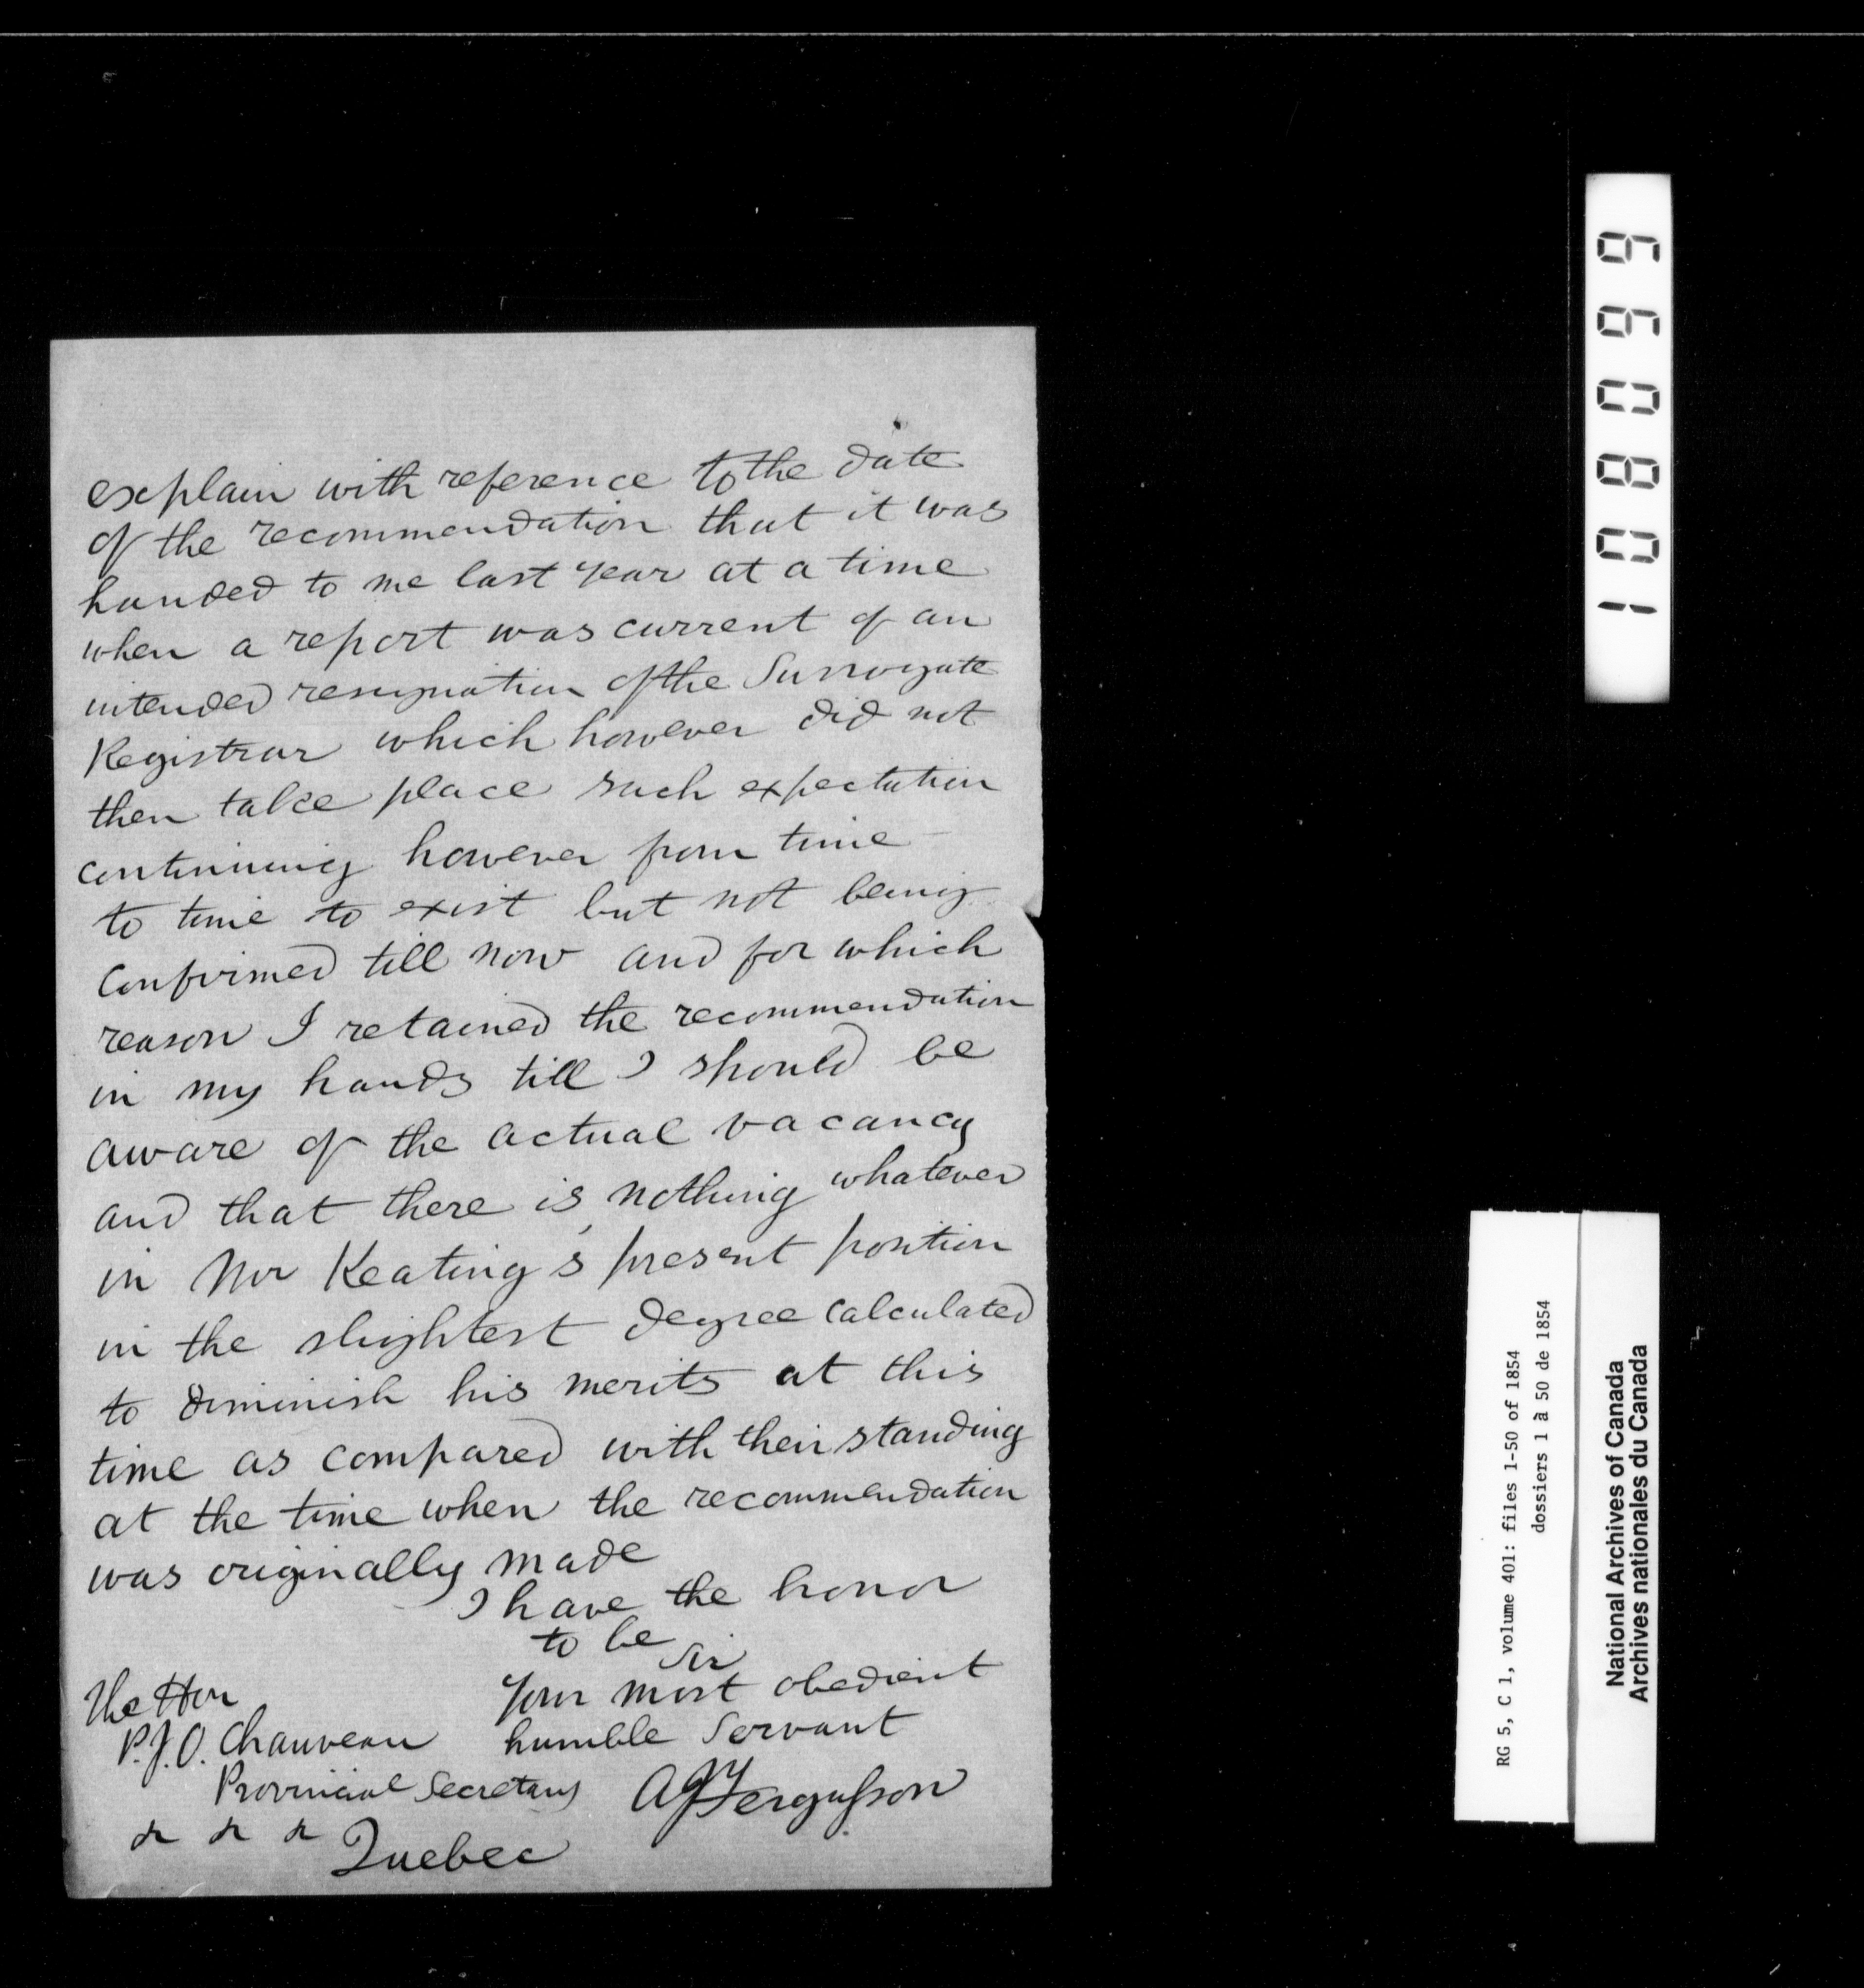 explain with reference to the date
of the recommendation that it was
handed to me last year at a time
when a report was current of an
intended resignation of the Surrogate
Registrar which however did not
then take place such expectation
continuing however from time
to time to exist but not being
confirmed till now and for which
reason I retained the recommendation
in my hands till I should be
aware of the actual vacancy
and that there is nothing whatever
in Mr Keating's present position
in the slightest degree calculated
to diminish his merits at this
time as compared with their standing
at the time when the recommendation
was originally made
I have the honor
to be
Sir
Your most obedient
humble Servant
Fergusson
The Hon
P.J.O. Chauveau
Provincial Secretary
& & &
Quebec
108099
RG 5, C 1, volume 401: files 1-50 of 1854
dossiers 1 à 50 de 1854
National Archives of Canada
Archives nationales du Canada